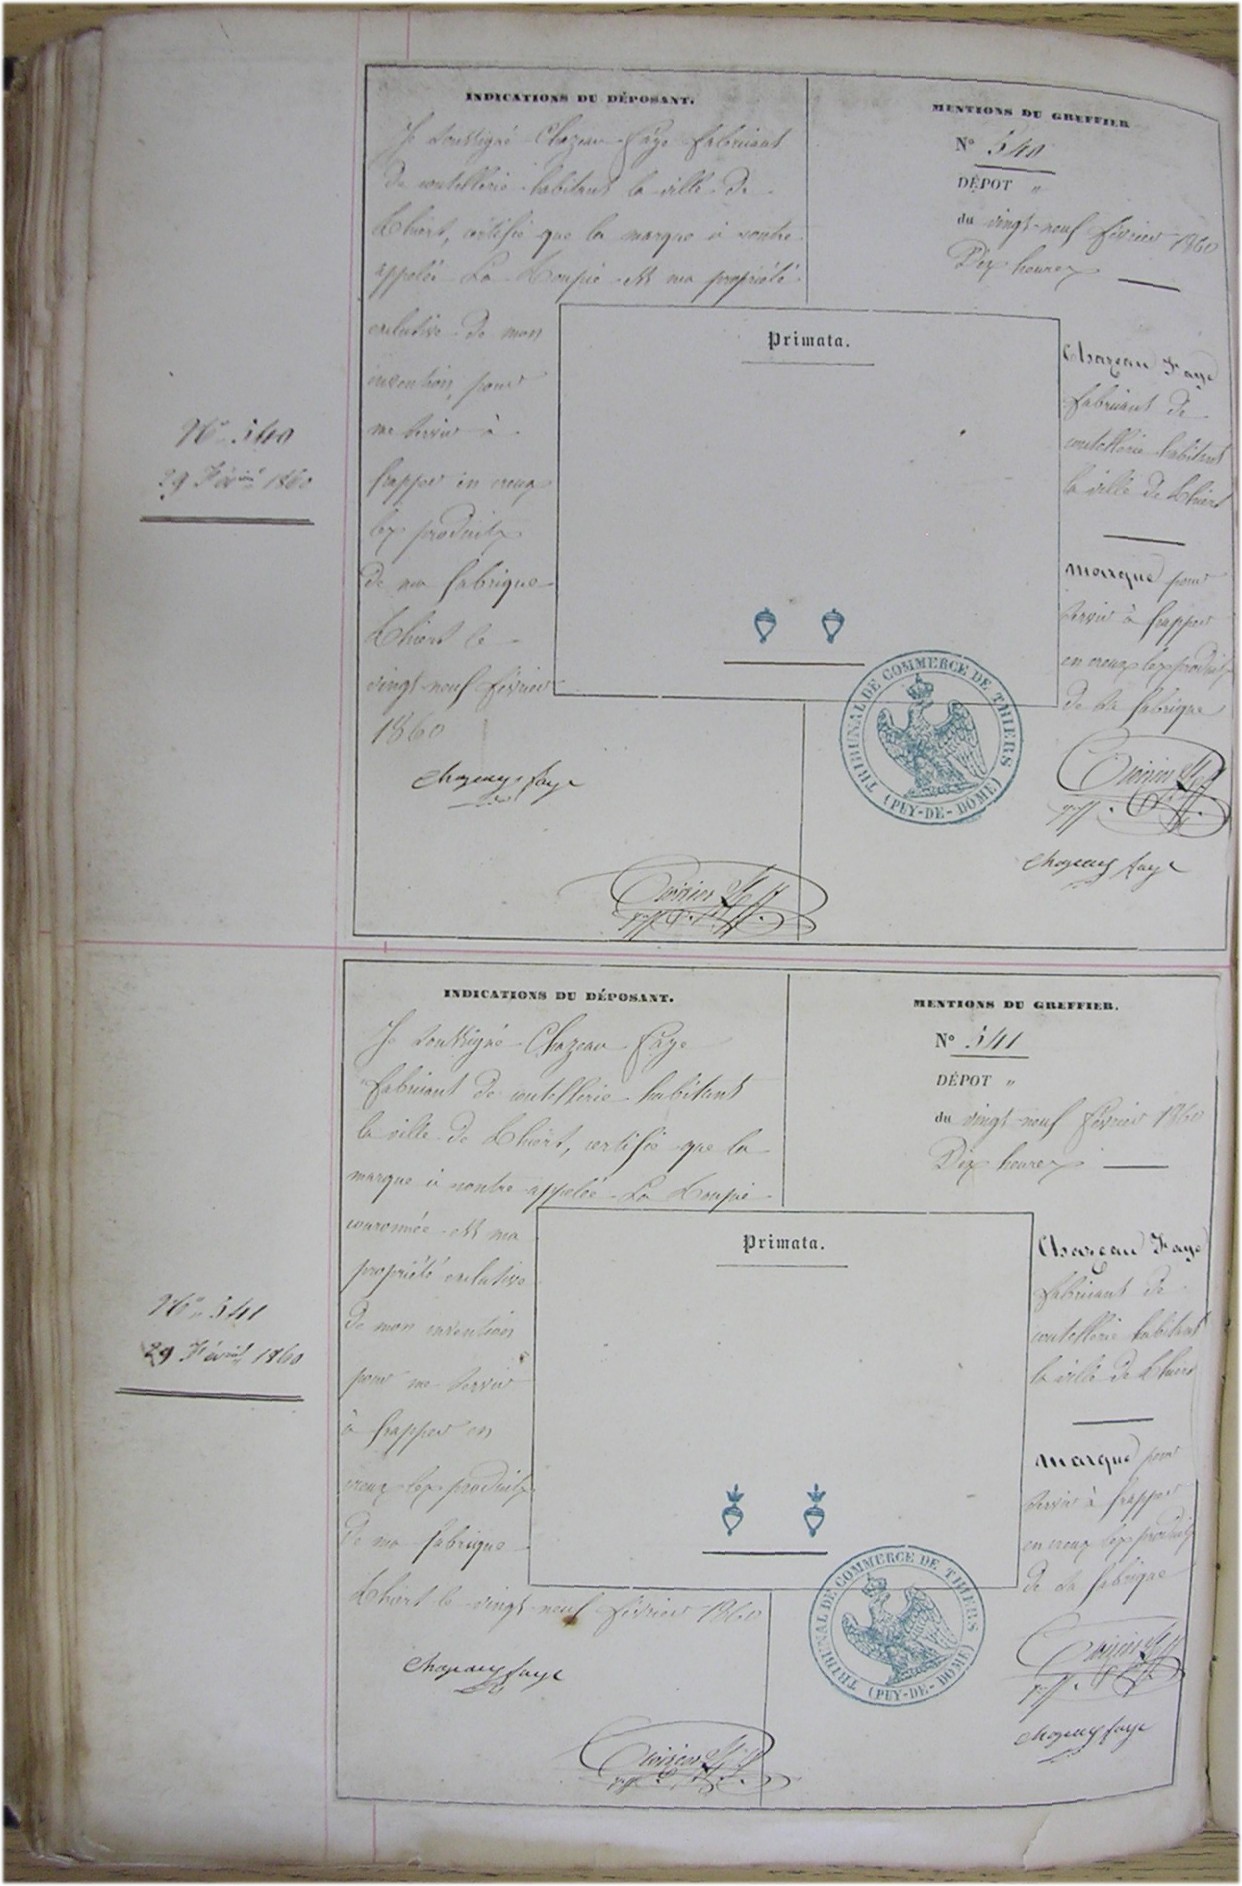 N° 540
29 Février 1860
INDICATIONS DU DÉPOSANT.
Je soussigné Chazeau Faye fabricant
de coutellerie habitant la ville de
Thiers, certifie que la marque ci contre
appelée La Toupie est ma propriété
exclusive de mon
invention, pour
me servir à
frapper en creux
les produits
de ma fabrique
Thiers le
vingt-neuf février
1860
Chazeau Faye
MENTIONS DU GREFFIER
N° 540
DÉPOT "
du vingt-neuf février 1860
Dix heures
Primata.
Chazeau Faye
fabricant de
coutellerie habitant
la ville de Thiers
marque pour
servir à frapper
en creux les produits
de sa fabrique
TRIBUNAL DE COMMERCE DE THIERS
(PUY-DE-DOME)
Chazeau Faye
N° 541
29 Février 1860
INDICATIONS DU DÉPOSANT.
Je soussigné Chazeau Faye
fabricant de coutellerie habitant
la ville de Thiers, certifie que la
marque ci contre appelée La Toupie
couronnée est ma
propriété exclusive
de mon invention
pour me servir
à frapper en
creux les produits
de ma fabrique
Thiers le vingt-neuf février 1860
Chazeau Faye
MENTIONS DU GREFFIER.
N° 541
DÉPOT "
du vingt-neuf février 1860
Dix heures
Primata.
Chazeau Faye
fabricant de
coutellerie habitant
la ville de Thiers
marque pour
servir à frapper
en creux les produits
de sa fabrique
TRIBUNAL DE COMMERCE DE THIERS
(PUY-DE-DOME)
Chazeau Faye